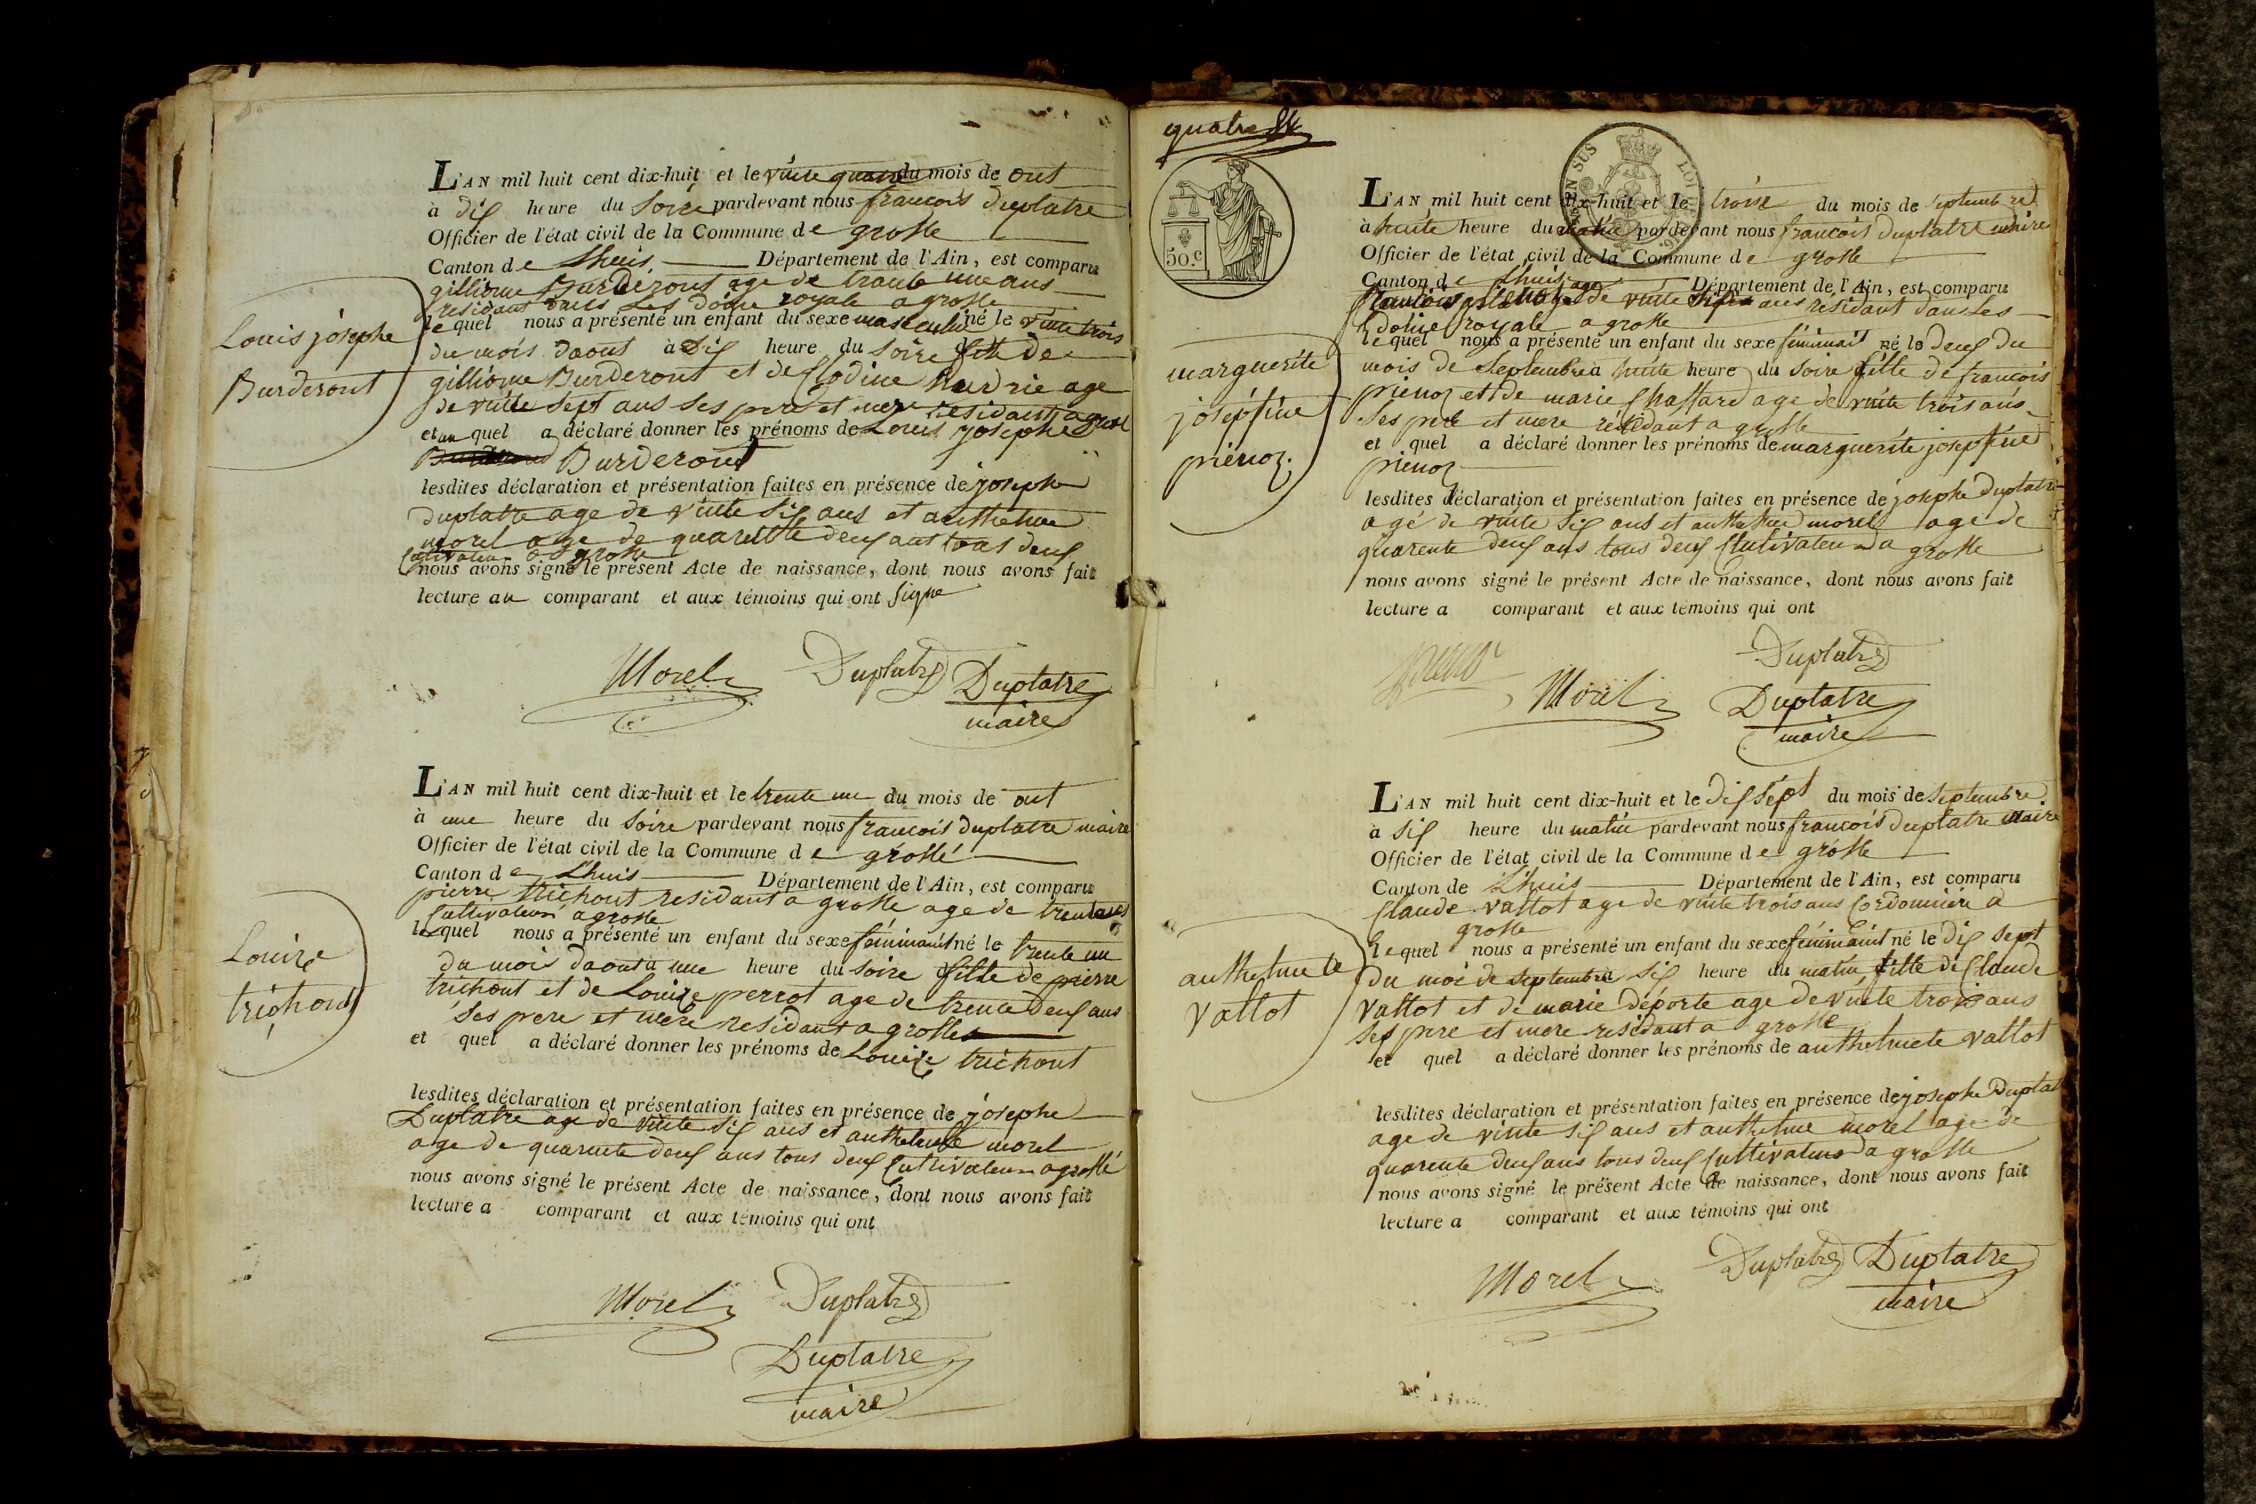 Louis josephe
Burderont
L'AN mil huit cent dix-huit et le vinte quatre du mois de out
à dis heure du soire pardevant nous francois duplatre
Officier de l'état civil de la Commune de grolle
Canton de Lhuis Département de l'Ain, est comparu
gilliome Burderont age de trante une ans
residant dans les doine royale a grolle
lequel nous a présenté un enfant du sexe masculin né le vinte trois
du mois daout à sis heure du soire fils de
gilliome Burderont et de Clodine
age
de vinte sept ans ses pere et mere residant a grol
et au quel a déclaré donner les prénoms de Louis josephe
Burderont
lesdites déclaration et présentation faites en présence de josephe
duplatre age de vinte sis ans et anthelme
morel age de quarente deus ans tous deus
Cultivateur a grolle
nous avons signé le présent Acte de naissance, dont nous avons fait
lecture au comparant et aux témoins qui ont signe
Morel Duplatre Duplatre
maire
Louise
trichont
L'AN mil huit cent dix-huit et le trente un du mois de out
à une heure du soire pardevant nous francois duplatre maire
Officier de l'état civil de la Commune de grolle
Canton de Lhuis Département de l'Ain, est comparu
pierre trichont residant a grolle age de trente
Cultivateur a grolle
lequel nous a présenté un enfant du sexe féminaint né le trente un
du mois daout a une heure du soire fille de pierre
trichont et de Louise perrot age de trente deus ans
ses pere et mere residant a grolle
et quel a déclaré donner les prénoms de Louise trichont
lesdites déclaration et présentation faites en présence de josephe
Duplatre age de vinte sis ans et anthelme morel
age de quarente deus ans tous deus Cultivateur a grolle
nous avons signé le présent Acte de naissance, dont nous avons fait
lecture a comparant et aux témoins qui ont
Morel Duplatre
Duplatre
maire
quatre
50.c
marguerite
josepfine
prienoz.
L'AN mil huit cent dix-huit et le troise du mois de septembre
à huite heure du matin pardevant nous francois duplatre maire
Officier de l'état civil de la Commune de grolle
Canton de Lhuis Département de l'Ain, est comparu
francois prienoz age de vinte sis ans résidant dans les
doine royale a grolle
lequel nous a présenté un enfant du sexe féminait né le deus du
mois de septembre à huite heure du soire fille de francois
prienoz et de marie Chaffard age de vinte trois ans
ses pere et mere résidant a grolle
et quel a déclaré donner les prénoms de marguerite josepfine
prienoz
lesdites déclaration et présentation faites en présence de josephe duplatre
agé de vinte sis ans et anthelme morel age de
quarente deus ans tous deus Cultivateur a grolle
nous avons signé le présent Acte de naissance, dont nous avons fait
lecture a comparant et aux témoins qui ont
Duplatre
Morel Duplatre
maire
anthelmete
vallot
L'AN mil huit cent dix-huit et le dis sept du mois de septembre
à sis heure du matin pardevant nous francois duplatre maire
Officier de l'état civil de la Commune de grolle
Canton de Lhuis Département de l'Ain, est comparu
Claude vallot age de vinte trois ans Cordonniere a
grolle
lequel nous a présenté un enfant du sexe féminaint né le dis sept
du moi de septembre à sis heure du matin fille de Claude
vallot et de marie déporte age de vinte trois ans
ses pere et mere residant a grolle
et quel a déclaré donner les prénoms de anthelmete vallot
lesdites déclaration et présentation faites en présence de josephe Duplat
age de vinte sis ans et anthelme morel age de
quarente deus ans tous deus Cultivateur a grolle
nous avons signé le présent Acte de naissance, dont nous avons fait
lecture a comparant et aux témoins qui ont
Morel Duplatre Duplatre
maire